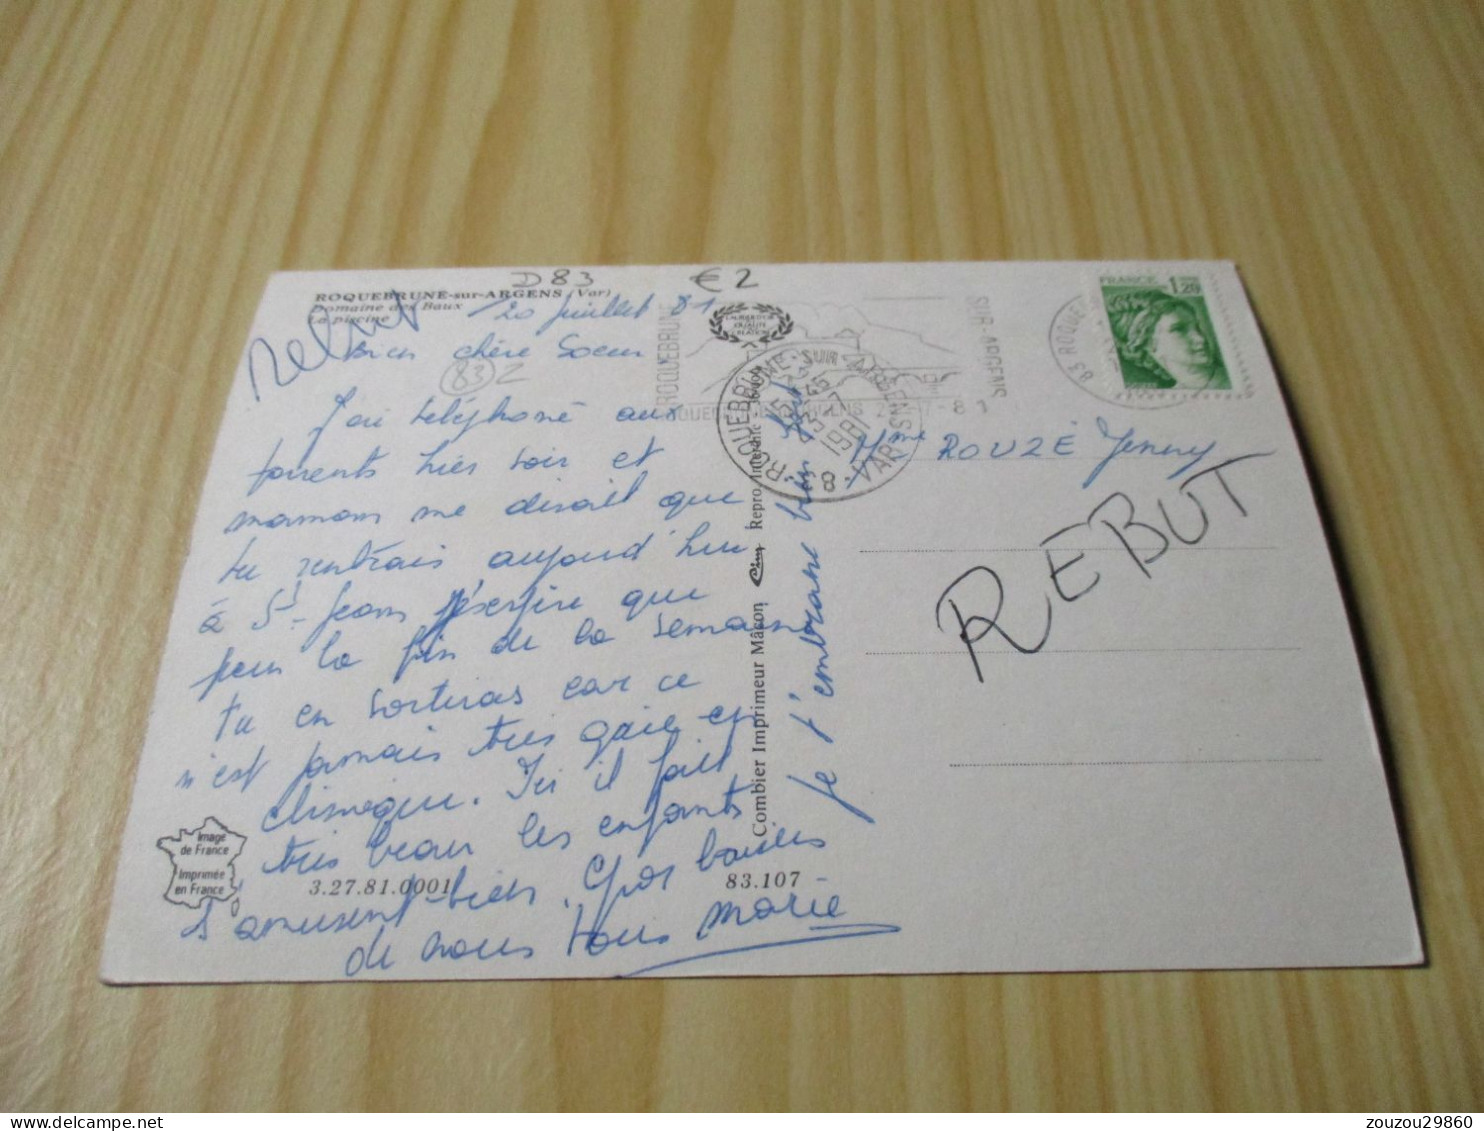 D 83
€ 2
ROQUEBRUNE-sur-ARGENS (Var)
Domaine des Baux
La piscine
Rebut
20 juillet 81
Bien chère Soeur
83 2
J'ai téléphoné aux
parents hier soir et
maman me disait que
tu rentrais aujourd'hui
à St-Jean j'espère que
pour la fin de la semaine
tu en sortiras car ce
n'est jamais très gaie en
clinique. Ici il fait
très beau les enfants
s'amusent bien. Gros baisers
de nous tous Marie
Je t'embrasse bien fort
Image
de France
Imprimée
en France
3.27.81.0001
83.107
Combier Imprimeur Mâcon Cim Repro. Interdite
ROQUEBRUNE
SUR-ARGENS
ROQUEBRUNE-SUR-ARGENS
1981
83 VAR
83 ROQUE
FRANCE 1,20
Mme ROUZÉ Jenny
REBUT
zouzou29860